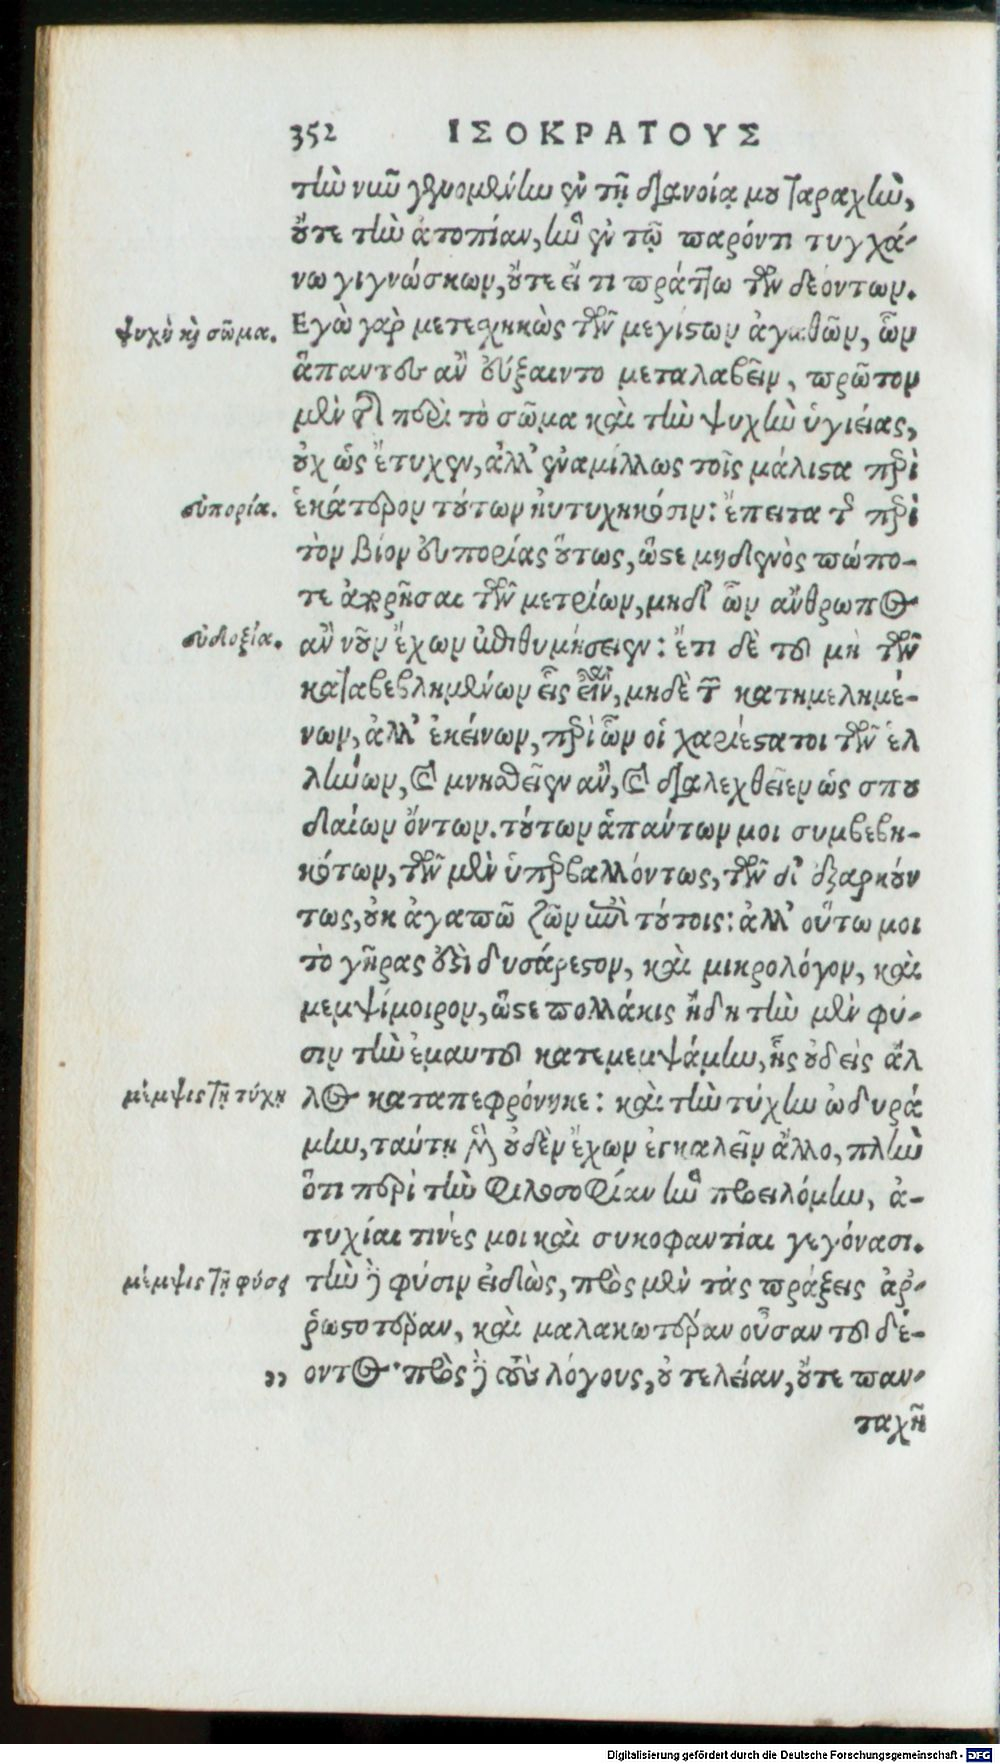 352 ΙΣΟΚΡΑΤΟΥΣ
τὴν νῦν γενομένην ἐν τῇ διανοίᾳ μου ταραχὴν,
οὔτε τὴν ἀτοπίαν, ἣν ἐν τῷ παρόντι τυγχά-
νω γιγνώσκων, οὔτε εἴ τι πράττω τῶν δεόντων.
ψυχὴ καὶ σῶμα.
Εγὼ γὰρ μετεσχηκὼς τῶν μεγίστων ἀγαθῶν, ὧν
ἅπαντες ἂν εὔξαιντο μεταλαβεῖν, πρῶτον
μὲν τῆς περὶ τὸ σῶμα καὶ τὴν ψυχὴν ὑγιείας,
οὐχ ὡς ἔτυχεν, ἀλλ' ἐναμίλλως τοῖς μάλιστα περὶ
εὐπορία.
ἑκάτερον τούτων ηὐτυχηκόσιν: ἔπειτα τῆς περὶ
τὸν βίον εὐπορίας οὕτως, ὥστε μηδενὸς πώπο-
τε ἀπορῆσαι τῶν μετρίων, μηδ' ὧν ἄνθρωπος
εὐδοξία.
ἂν νοῦν ἔχων ἐπιθυμήσειεν: ἔτι δὲ τοῦ μὴ τῶν
καταβεβλημένων εἷς εἶναι, μηδὲ τῶν κατημελημέ-
νων, ἀλλ' ἐκείνων, περὶ ὧν οἱ χαριέστατοι τῶν ἑλ
λήνων, καὶ μνησθεῖεν ἂν, καὶ διαλεχθεῖεν ὡς σπου
δαίων ὄντων. τούτων ἁπάντων μοι συμβεβη-
κότων, τῶν μὲν ὑπερβαλλόντως, τῶν δ' ἐξαρκούν
τως, οὐκ ἀγαπῶ ζῶν ἐπὶ τούτοις: ἀλλ' οὕτω μοι
τὸ γῆρας ἐστὶ δυσάρεστον, καὶ μικρολόγον, καὶ
μεμψίμοιρον, ὥστε πολλάκις ἤδη τὴν μὲν φύ-
σιν τὴν ἐμαυτοῦ κατεμεμψάμην, ἧς οὐδεὶς ἄλ
μέμψις τῇ τύχῃ
λος καταπεφρόνηκε: καὶ τὴν τύχην ὠδυρά
μην, ταύτῃ μὲν οὐδὲν ἔχων ἐγκαλεῖν ἄλλο, πλὴν
ὅτι περὶ τὴν φιλοσοφίαν ἣν προειλόμην, ἀ-
τυχίαι τινές μοι καὶ συκοφαντίαι γεγόνασι.
μέμψις τῇ φύσει
τὴν δὲ φύσιν εἰδὼς, πρὸς μὲν τὰς πράξεις ἀῤ-
ῥωστοτέραν, καὶ μαλακωτέραν οὖσαν τοῦ δέ-
,, οντος· πρὸς δὲ τοὺς λόγους, οὐ τελείαν, οὔτε παν-
ταχῆ
Digitalisierung gefördert durch die Deutsche Forschungsgemeinschaft - DFG